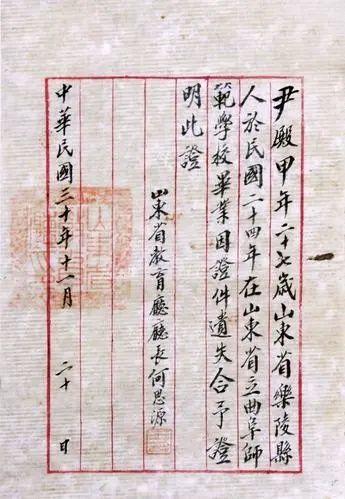 尹殿甲年二十七歲山東省樂陵縣
人於民國二十四年在山東省立曲阜師
範學校畢業因證件遺失合予證
明此證
山東省教育廳廳長何思源
中華民國三十年十一月二十日